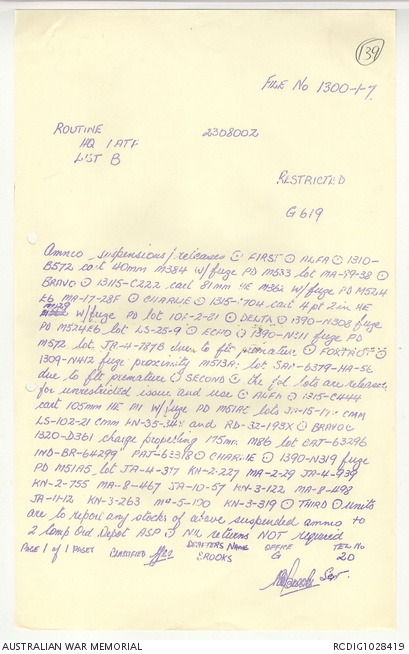 139
FILE No 1300-1-7
ROUTINE 230800Z
HQ 1 ATF
LIST B
RESTRICTED
G619
Ammo suspensions/releases ⊙ FIRST ⊙ ALFA ⊙ 1310-
B572 cart 40mm M384 W/fuze PD M533 lot MA-99-38 ⊙
BRAVO ⊙ 1315-C222 cart 81mm HE M362 W/fuze PD M524
E6 MA-17-28F ⊙ CHARLIE ⊙ 1315- 704 cart 4 pt 2 in HE
M329 W/fuze PD lot 10F-2-81 ⊙ DELTA ⊙ 1390-N308 fuze
PD M524E6 lot LS-25-9 ⊙ ECHO ⊙ 1390-N311 fuze PD
M572 lot JA-4-787B due to flt premature ⊙ FOXTROT ⊙
1309-N412 fuze proximity M513A1 lot SAN-6379-HA-56
due to flt premature ⊙ SECOND ⊙ the fol lots are released
for unrestricted issue and use ⊙ ALFA ⊙ 1315-C444
cart 105mm HE M1 W/fuze PD M51AC lots JA-15-17: CMM
LS-102-21 CMM KN-35-34: and RD-32-193X ⊙ BRAVO ⊙
1320-D361 charge propelling 175mm M86 lot BAJ-63296
IND-BR-64299 PAJ-63318 ⊙ CHARLIE ⊙ 1390-N319 fuze
PD M51A5 lot JA-4-317 KN-2-227 MA-2-29 JA-4-939
KN-2-755 MA-8-467 JA-10-57 KN-3-122 MA-8-498
JA-11-12 KN-3-263 MA-5-170 KN-3-319 ⊙ THIRD ⊙ units
are to report any stocks of above suspended ammo to
2 Comp Ord Depot ASP ⊙ Nil returns NOT required
PAGE 1 of 1 PAGES CLASSIFIED DRAFTERS NAME OFFICE TEL No
BROOKS G 20
AUSTRALIAN WAR MEMORIAL RCDIG1028419